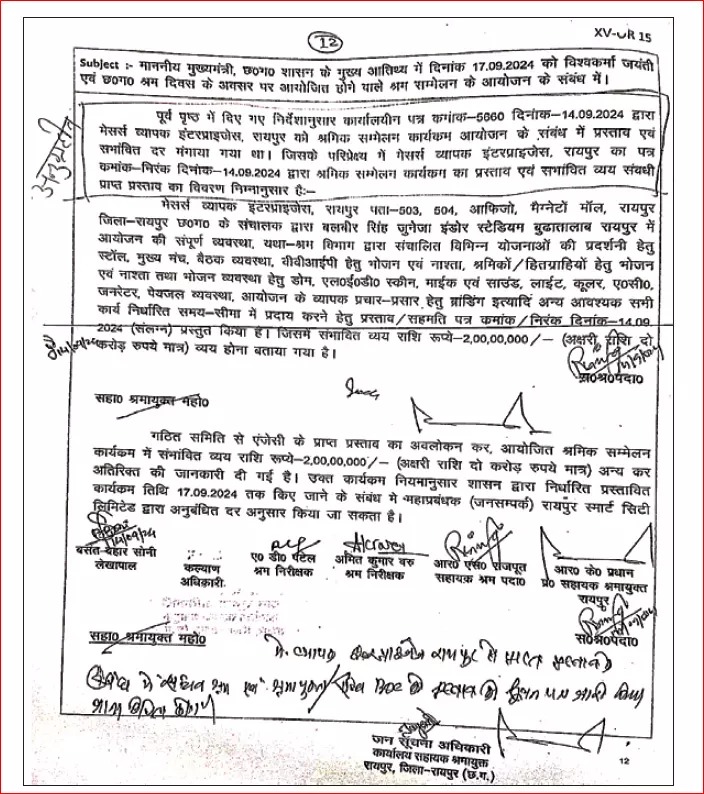 12
XV-CR 15
Subject :- माननीय मुख्यमंत्री, छ०ग० शासन के मुख्य आतिथ्य में दिनांक 17.09.2024 को विश्वकर्मा जयंती
एवं छ०ग० श्रम दिवस के अवसर पर आयोजित होने वाले श्रम सम्मेलन के आयोजन के संबंध में।
पूर्व पृष्ठ में दिए गए निर्देशानुसार कार्यालयीन पत्र कमांक-5660 दिनांक-14.09.2024 द्वारा
मेसर्स व्यापक इंटरप्राइजेस, रायपुर को श्रमिक सम्मेलन कार्यकम आयोजन के संबंध में प्रस्ताव एवं
संभावित दर मंगाया गया था। जिसके परिप्रेक्ष्य में मेसर्स व्यापक इंटरप्राइजेस, रायपुर का पत्र
कमांक-निरंक दिनांक-14.09.2024 द्वारा श्रमिक सम्मेलन कार्यकम का प्रस्ताव एवं संभावित व्यय संबधी
प्राप्त प्रस्ताव का विवरण निम्नानुसार है:-
मेसर्स व्यापक इंटरप्राइजेस, रायपुर पता-503, 504, आफिजो, मैग्नेटों मॉल, रायपुर
जिला-रायपुर छ०ग० के संचालक द्वारा बलबीर सिंह जुनेजा इंडोर स्टेडियम बुढातालाब रायपुर में
आयोजन की संपूर्ण व्यवस्था, यथा-श्रम विभाग द्वारा संचालित विभिन्न योजनाओं की प्रदर्शनी हेतु
स्टॉल, मुख्य मंच, बैठक व्यवस्था, वीवीआईपी हेतु भोजन एवं नाश्ता, श्रमिकों/हितग्राहियों हेतु भोजन
एवं नाश्ता तथा भोजन व्यवस्था हेतु डोम, एल०ई०डी० स्कीन, माईक एवं साउंड, लाईट, कूलर, ए०सी०,
जनरेटर, पेयजल व्यवस्था, आयोजन के व्यापक प्रचार-प्रसार हेतु ब्रांडिंग इत्यादि अन्य आवश्यक सभी
कार्य निर्धारित समय-सीमा में प्रदाय करने हेतु प्रस्ताव/सहमति पत्र कमांक/निरंक दिनांक-14.09.
2024 (संलग्न) प्रस्तुत किया है। जिसमें संभावित व्यय राशि रूप्ये-2,00,00,000/- (अक्षरी राशि दो
करोड़ रुपये मात्र) व्यय होना बताया गया है।
स०श्र०पदा०
सहा० श्रमायुक्त महो०
गठित समिति से एंजेसी के प्राप्त प्रस्ताव का अवलोकन कर, आयोजित श्रमिक सम्मेलन
कार्यकम में संभावित व्यय राशि रूप्ये-2,00,00,000/- (अक्षरी राशि दो करोड़ रुपये मात्र) अन्य कर
अतिरिक्त की जानकारी दी गई है। उक्त कार्यकम नियमानुसार शासन द्वारा निर्धारित प्रस्तावित
कार्यकम तिथि 17.09.2024 तक किए जाने के संबंध मे महाप्रबंधक (जनसम्पर्क) रायपुर स्मार्ट सिटी
लिमिटेड द्वारा अनुबंधित दर अनुसार किया जा सकता है।
बसंत बेहार सोनी
लेखापाल
कल्याण
अधिकारी
ए० डी० पटेल
श्रम निरीक्षक
अमित कुमार बरु
श्रम निरीक्षक
आर० एस० राजपूत
सहायक श्रम पदा०
आर० के० प्रधान
प्र० सहायक श्रमायुक्त
रायपुर
स०श्र०पदा०
सहा० श्रमायुक्त महो०
जन सूचना अधिकारी
कार्यालय सहायक श्रमायुक्त
रायपुर, जिला-रायपुर (छ.ग.)
12